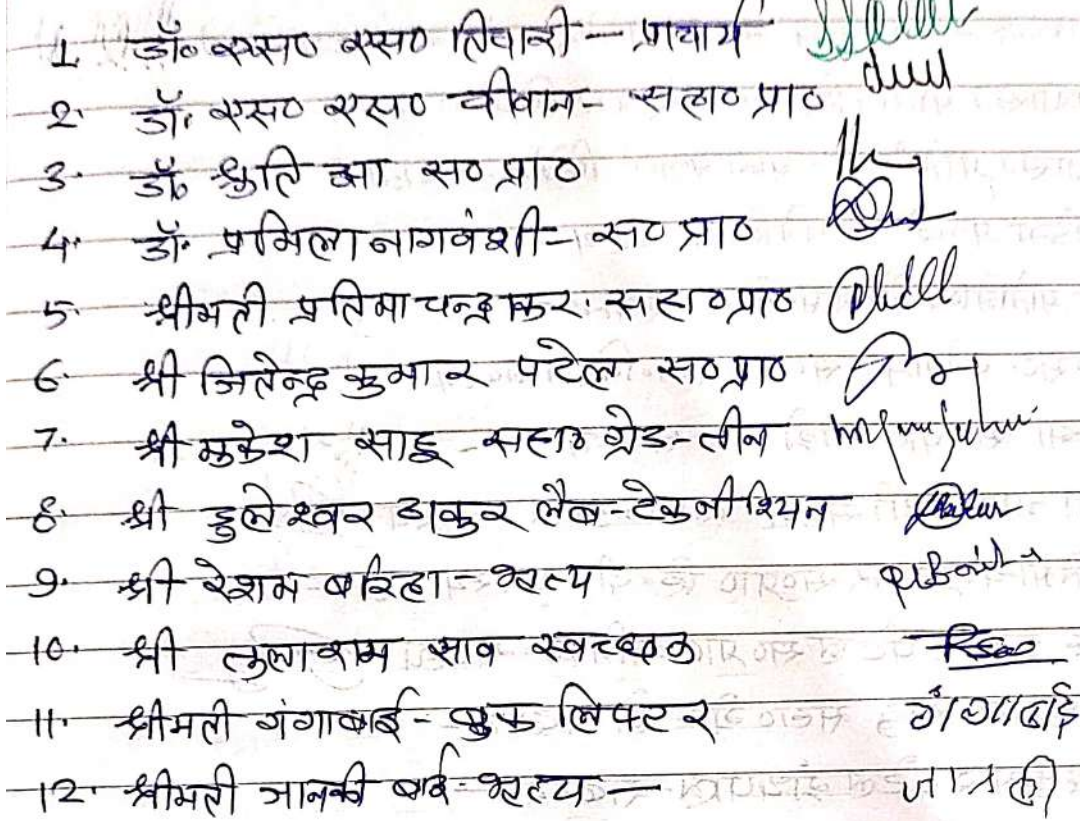 1. डॉ० एस० एस० तिवारी - प्राचार्य
2. डॉ. एस० एस० दीवान - सहा० प्रा०
3. डॉ० श्रुति झा स० प्रा०
4. डॉ. प्रमिला नागवंशी - स० प्रा०
5. श्रीमती प्रतिमा चन्द्राकर सहा० प्रा०
6. श्री जितेन्द्र कुमार पटेल स० प्रा०
7. श्री मुकेश साहू सहा० ग्रेड-तीन
8. श्री डुलेश्वर ठाकुर लैब-टेक्नीशियन
9. श्री रेशम बरिहा - भृत्य
10. श्री तुलाराम साव स्वच्छक
11. श्रीमती गंगाबाई - बुक लिफ्टर गंगाबाई
12. श्रीमती जानकी बाई - भृत्य — जानकी